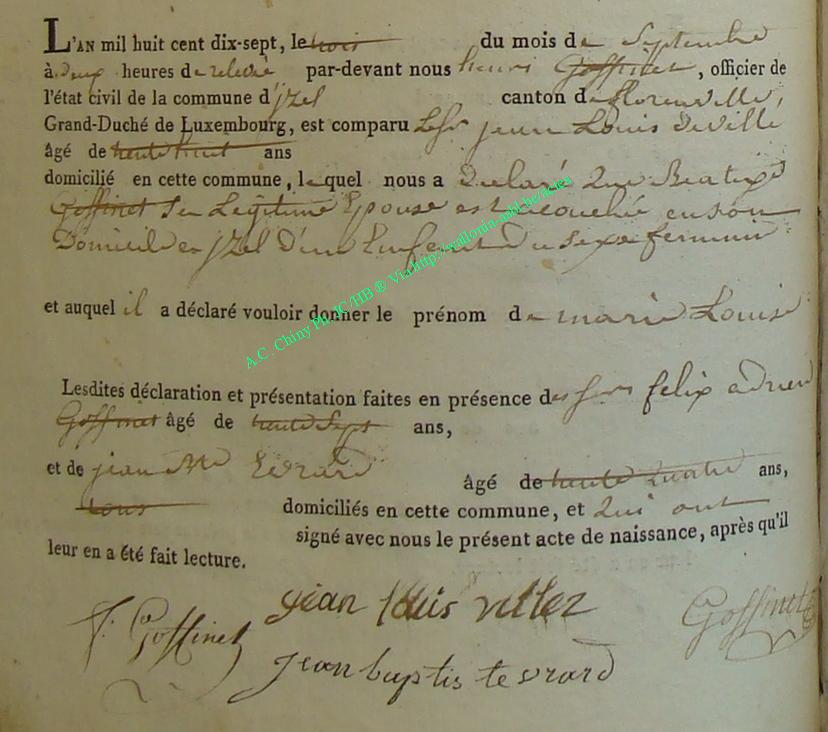 L'AN mil huit cent dix-sept, le trois du mois de Septembre
à deux heures de relevée par-devant nous henri Goffinet, officier de
l'état civil de la commune d'jzel canton de florenville,
Grand-Duché de Luxembourg, est comparu Le Sr jean Louis Deville
âgé de trente huit ans
domicilié en cette commune, lequel nous a Declaré Que Beatrix
Goffinet Sa Legitime Epouse est accouchée en son
Domicile en jzel D'un Enfant du sexe feminin
et auquel il a déclaré vouloir donner le prénom de marie Louise
Lesdites déclaration et présentation faites en présence des srs felix adrien
Goffinet âgé de trente Sept ans,
et de jean Evrard âgé de trente Quatre ans,
tous domiciliés en cette commune, et Qui ont
signé avec nous le présent acte de naissance, après qu'il
leur en a été fait lecture.
jean louis villez
f. Goffinet Goffinet
jean baptis te vrard
A.C. Chiny Ph. JC/HB ® Via http://wallonia-asbl.be/